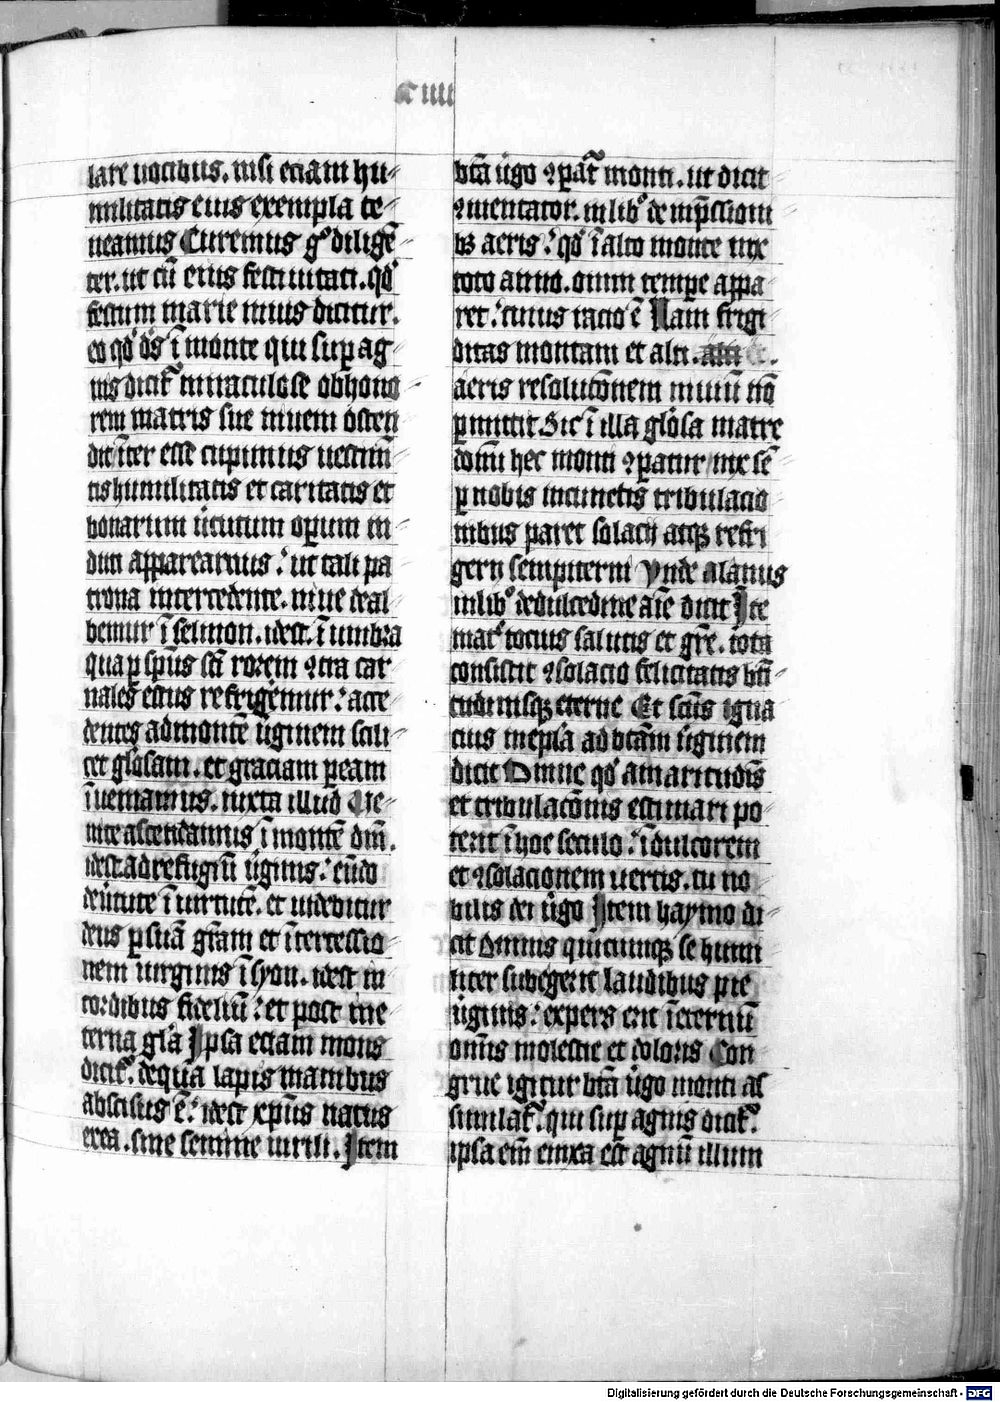 c iiii
lare vocibus. nisi eciam hu-
militatis eius exempla te-
neamus Curemus gͦ diligē-
ter. ut cū eius festivitati. qd̄
festum marie nivis dicitur.
eo qd̄ ds̄ ī monte qui sup ag-
nis dicit̄ miraculose ob hono-
rem matris sue nivem osten
dit īter esse cupimus vestim̄-
tis humilitatis et caritatis et
bonarum v̄tutum opum in-
duti appareamus. ut tali pa-
trona intercedente. nive deal-
bemur ī selmon. idest. ī umbra
qua p sp̄us sc̄i rorem ꝯtra car-
nales estus refrigēmur. acce-
dentes ad montē v̄ginem scili-
cet gl̄osam. et graciam p eam
īveniamus. iuxta illud Ve-
nite ascendamus ī montē dn̄i.
idest. ad refugiū v̄ginis. eūdo
de v̄tute ī virtutē. et videbitur
deus p suā gr̄am et ītercessio-
nem virginis ī syon. idest in
cordibus fideliū. et post in e-
terna gl̄a Ipsa eciam mons
dicit̄. de qua lapis manibus
abscisus ē. idest xp̄us natus
ex ea. sine semine virili. Item
bt̄a v̄go ꝯpat̄ monti. ut dicit
ꝯmentator. in libͦ de imp̄ssioni
bꝫ aeris. qd̄ ī alto monte nix
toto anno. omni tempe appa-
ret. cuius racio ē Nam frigi
ditas montani et alti.
aeris resoluc̄onem nivium nō
p mittit Sic ī illa gl̄osa matre
domī hec monti ꝯparatur nix sē
p nobis in cunctis tribulacio
nibus paret solacij atqꝫ refri
gerij sempiterni Unde Alanus
in libͦ de dulcedine aīe dicit Ite
mat̄ tocius salutis et gr̄e. tota
consistit ꝯsolacio felicitatis bt̄i
tudinisqꝫ eterne Et sc̄us igna
cius in ep̄la ad bt̄am v̄ginem
dicit Omne qd̄ amaritudīs
et tribulac̄onis estimari po
terit ī hoc seculo. ī dulcorem
et ꝯsolacionem vertis. tu no
bilis dei v̄go Item haymo di
cit Omnis quicumqꝫ se humi
liter subegerit laudibus pie
v̄ginis. expers erit ī eternū
om̄is molestie et doloris Con
grue igitur bt̄a v̄go monti as
similat̄. qui sup agnis dicit̄.
ipsa em̄ enixa est agnū illum
Digitalisierung gefördert durch die Deutsche Forschungsgemeinschaft - DFG